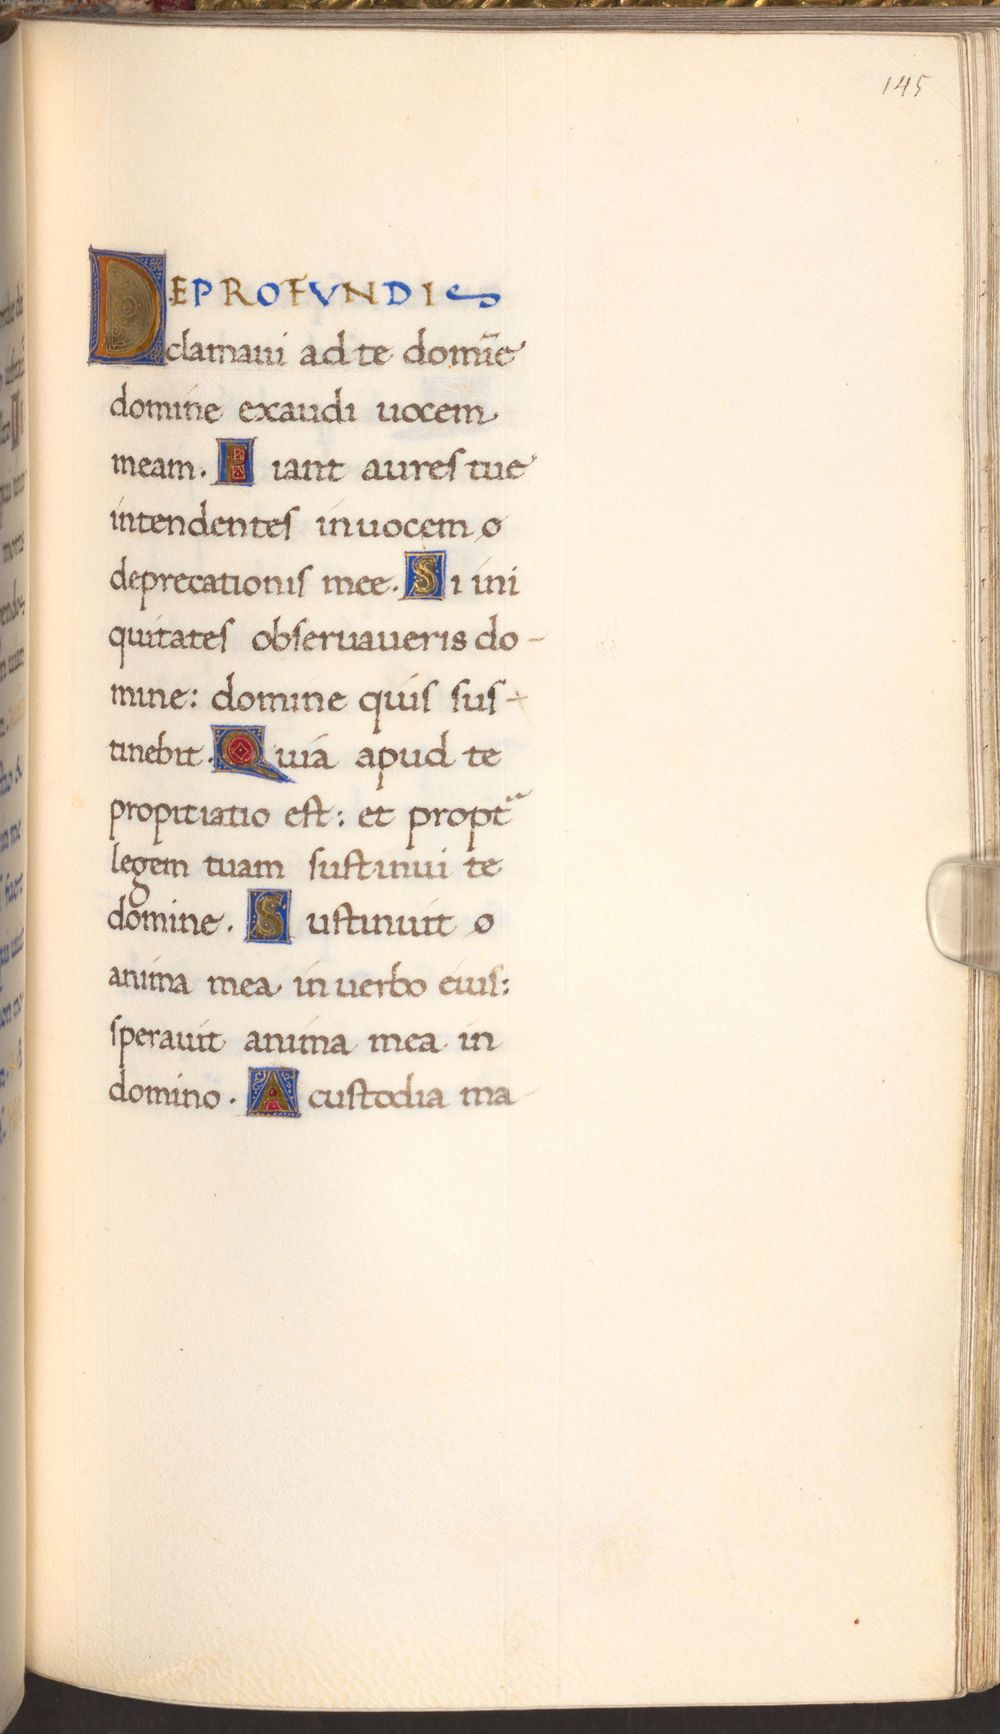 145
DE PROFVNDIS
clamaui ad te domīe
domine exaudi uocem
meam. Fiant aures tue
intendentes in uocem o
deprecationis mee. Si ini
quitates obseruaueris do-
mine: domine quis sus-
tinebit. Quia apud te
propitiatio est: et propt̃
legem tuam sustinui te
domine. Sustinuit o
anima mea in uerbo eius:
sperauit anima mea in
domino. A custodia ma